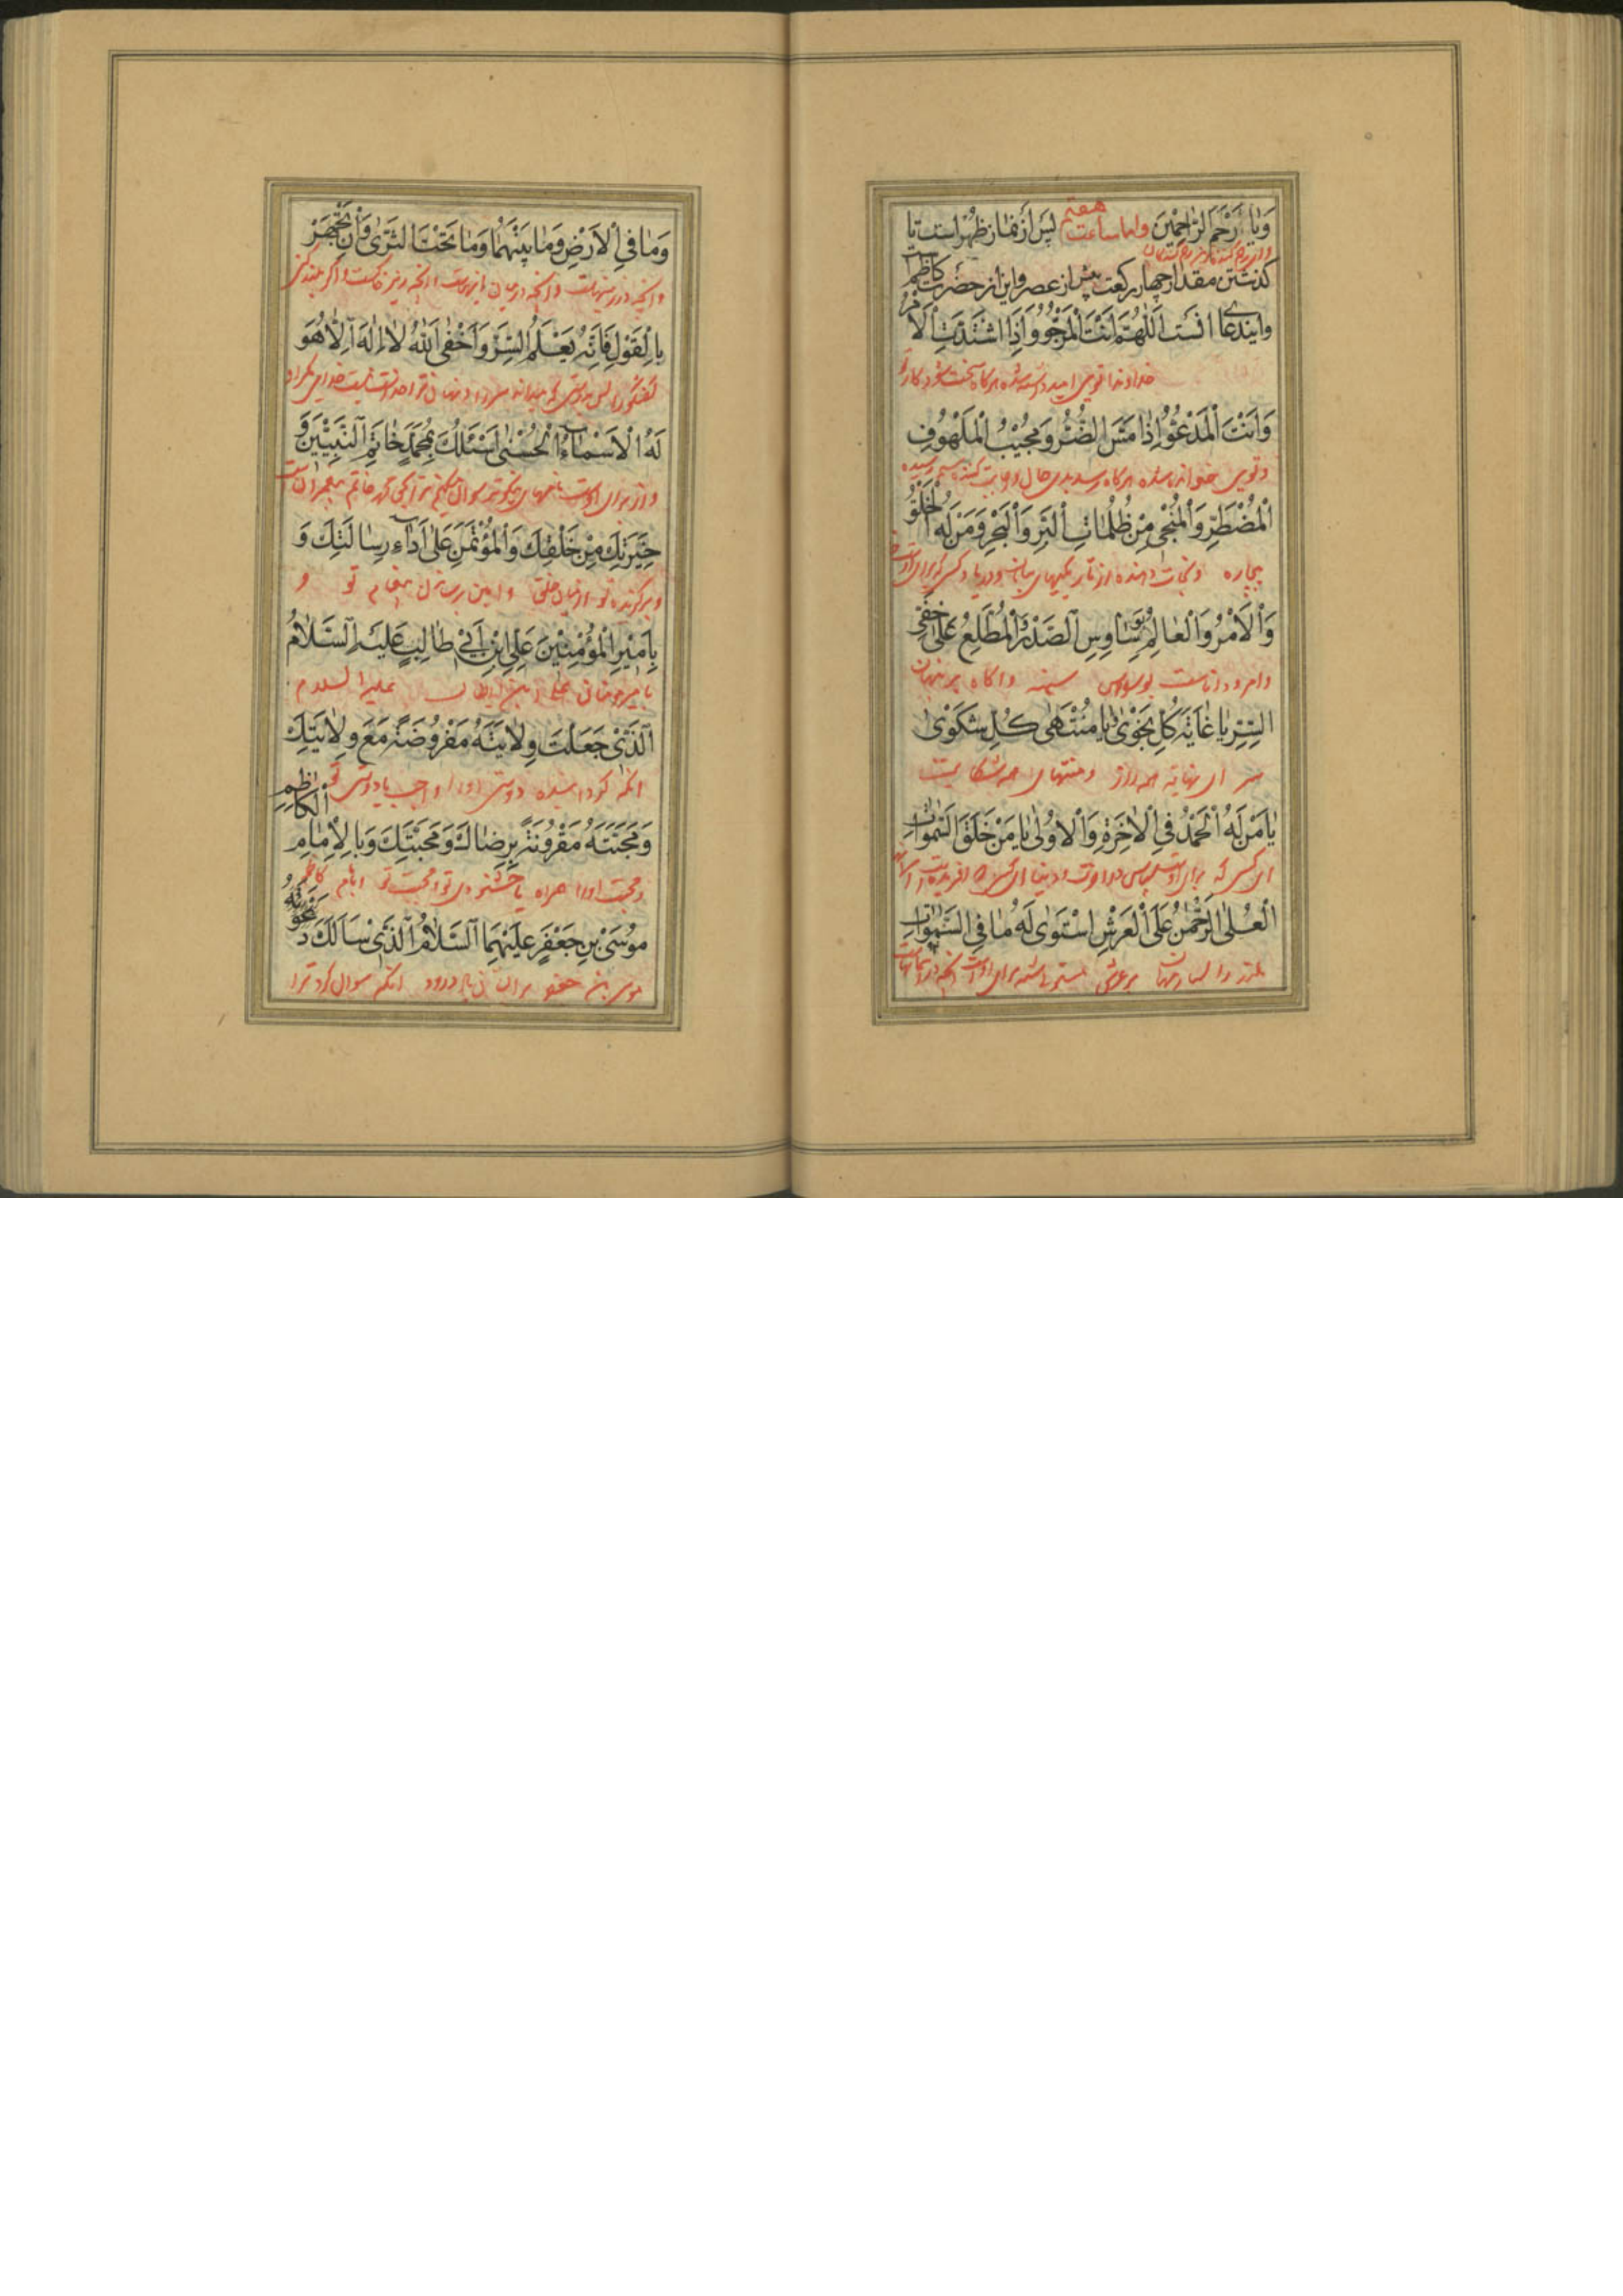 وَيٰا أَرْحَمَ الرّٰاحِمٖينَ واما ساعت هفتم پس از نماز ظهر است تا
واز رحم کننده تر رحم کنندکان
کذشتن مقدار چهار رکعت پیش از عصر واین از حضرت کاظم است
وایندعا اَللّٰهُمَّ اَنْتَ الْمَرْجُوُّ وَاِذَا اشْتَدَّتِ الْاَمْرُ
خداوندا توی امید داشته شده هرکاه سخت شود کار
وَاَنْتَ الْمَدْعُوُّ اِذٰا مَسَّ الضُّرُّ وَمُجٖيبُ الْمَلْهُوفِ
وتویی خوانده شده هرکاه رسد بدی حال
الْمُضْطَرِّ وَالْمُنْجٖی مِنْ ظُلُمٰاتِ الْبَرِّ وَالْبَحْرِ وَمَنْ لَهُ الْخَلْقُ
بیچاره ونجات دهنده از تاریکیهای بیابان ودریا وکسی که برای اوست
وَالْاَمْرُ وَالْعٰالِمُ بِوَسٰاوِسِ الصَّدْرِ الْمُطَّلِعُ عَلٰی خَفِیِّ
وامر ودانا است بوسواس سینه واکاه بر پنهان
السِّرِّ يٰا غٰايَةَ كُلِّ نَجْوٰی يٰا مُنْتَهٰی كُلِّ شَكْوٰی
سر ای نهایة همه راز ومنتهای همه شکایت
يٰا مَنْ لَهُ الْحَمْدُ فِی الْاٰخِرَةِ وَالْاُولٰی يٰا مَنْ خَلَقَ السَّمٰوٰاتِ
ای کسی که برای اوست سپاس در اخرت ودنیا ای کسی که افریده است
الْعُلٰی الرَّحْمٰنُ عَلَی الْعَرْشِ اسْتَوٰی لَهُ مٰا فِی السَّمٰوٰاتِ
بر عرش برای اوست انچه در اسمانهاست
وَمٰا فِی الْاَرْضِ وَمٰا بَيْنَهُمٰا وَمٰا تَحْتَ الثَّرٰی وَاِنْ تَجْهَرْ
وانچه در زمینهاست وانچه در میان وانچه در زیر خاکست واکر بلند کنی
بِالْقَوْلِ فَاِنَّهُ يَعْلَمُ السِّرَّ وَاَخْفٰی اَللّٰهُ لاٰ اِلٰهَ اِلاّٰ هُوَ
گفتگو را پس بدرستی که میداند سر را ونهان تر را خدا نیست خدایی مکر او
لَهُ الْاَسْمٰاءُ الْحُسْنٰی اَسْئَلُكَ بِمُحَمَّدٍ خٰاتَمِ النَّبِيّٖينَ وَ
و از برای اوست نامهای نیکوتر سوال میکنم ترا بحق محمد خاتم پیغمبران است
خِيَرَتِكَ مِنْ خَلْقِكَ وَالْمُؤْتَمَنِ عَلٰی اَدٰاءِ رِسٰالَتِكَ وَ
وبرکزیده تو از میان خلق وامین رساندن پیغام تو و
بِاَمٖيرِ الْمُؤْمِنٖينَ عَلِیِّ ابْنِ اَبٖی طٰالِبٍ عَلَيْهِ السَّلاٰمُ
بامیر مومنان علی ابن ابی طالب علیه السلام
الَّذٖی جَعَلْتَ وِلاٰيَتَهُ مَفْرُوضَةً مَعَ وِلاٰيَتِكَ
انکه کردانیده دوستی او را واجب با دوستی تو
وَمَحَبَّتَهُ مَقْرُونَةً بِرِضٰاكَ وَمَحَبَّتِكَ وَبِالْاِمٰامِ الْكٰاظِمِ
ومحبت او را همراه با خشنودی تو ومحبت تو وبامام کاظم
مُوسَی بْنِ جَعْفَرٍ عَلَيْهِمَا السَّلاٰمُ الَّذٖی سَاَلَكَ
موسی بن جعفر بر ایشان باد درود انکه سوال کرد ترا